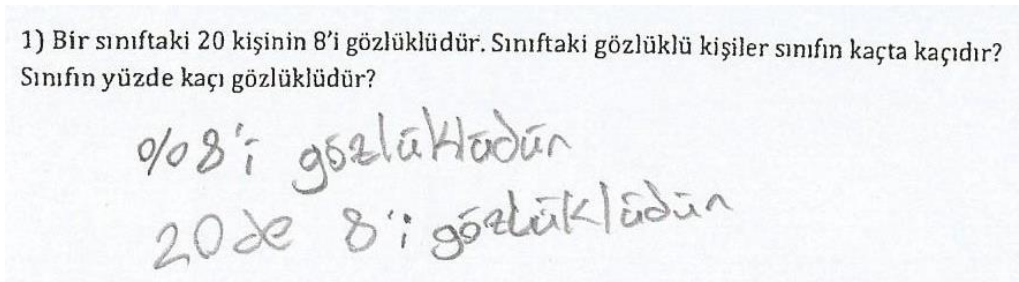 1) Bir sınıftaki 20 kişinin 8'i gözlüklüdür. Sınıftaki gözlüklü kişiler sınıfın kaçta kaçıdır?
Sınıfın yüzde kaçı gözlüklüdür?
%8'i gözlüklüdür
20 de 8'i gözlüklüdür